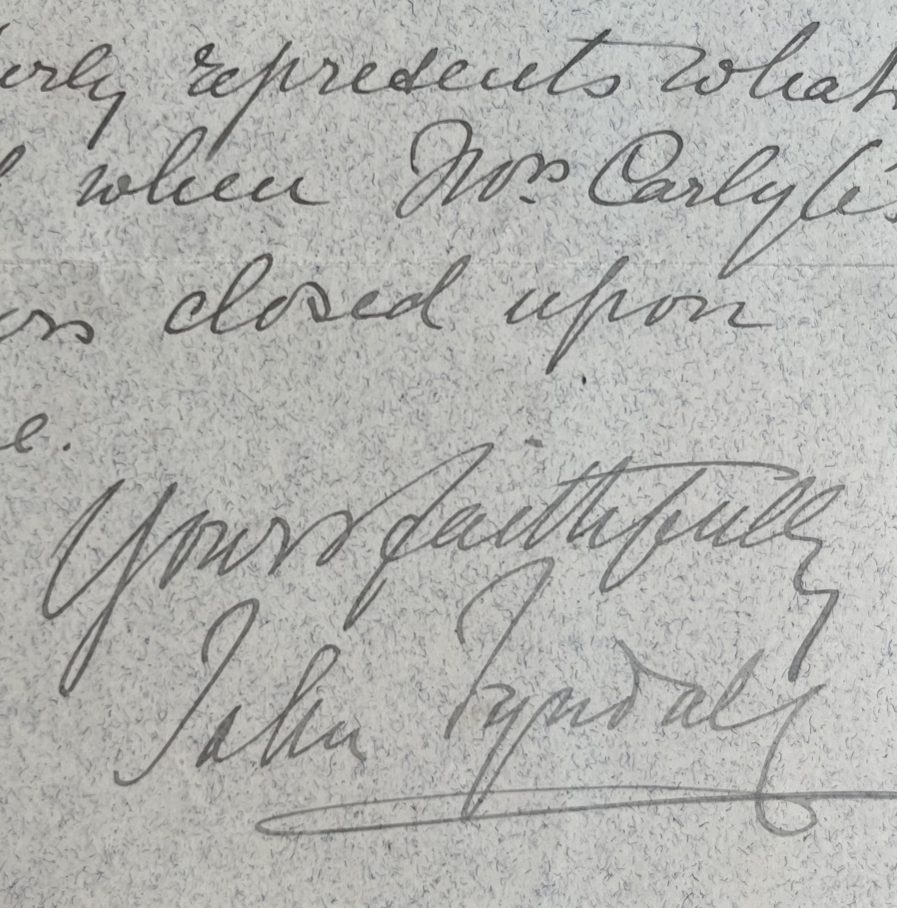 represents what
when Mrs Carlyle's
closed upon
Yours faithfully
John Tyndall